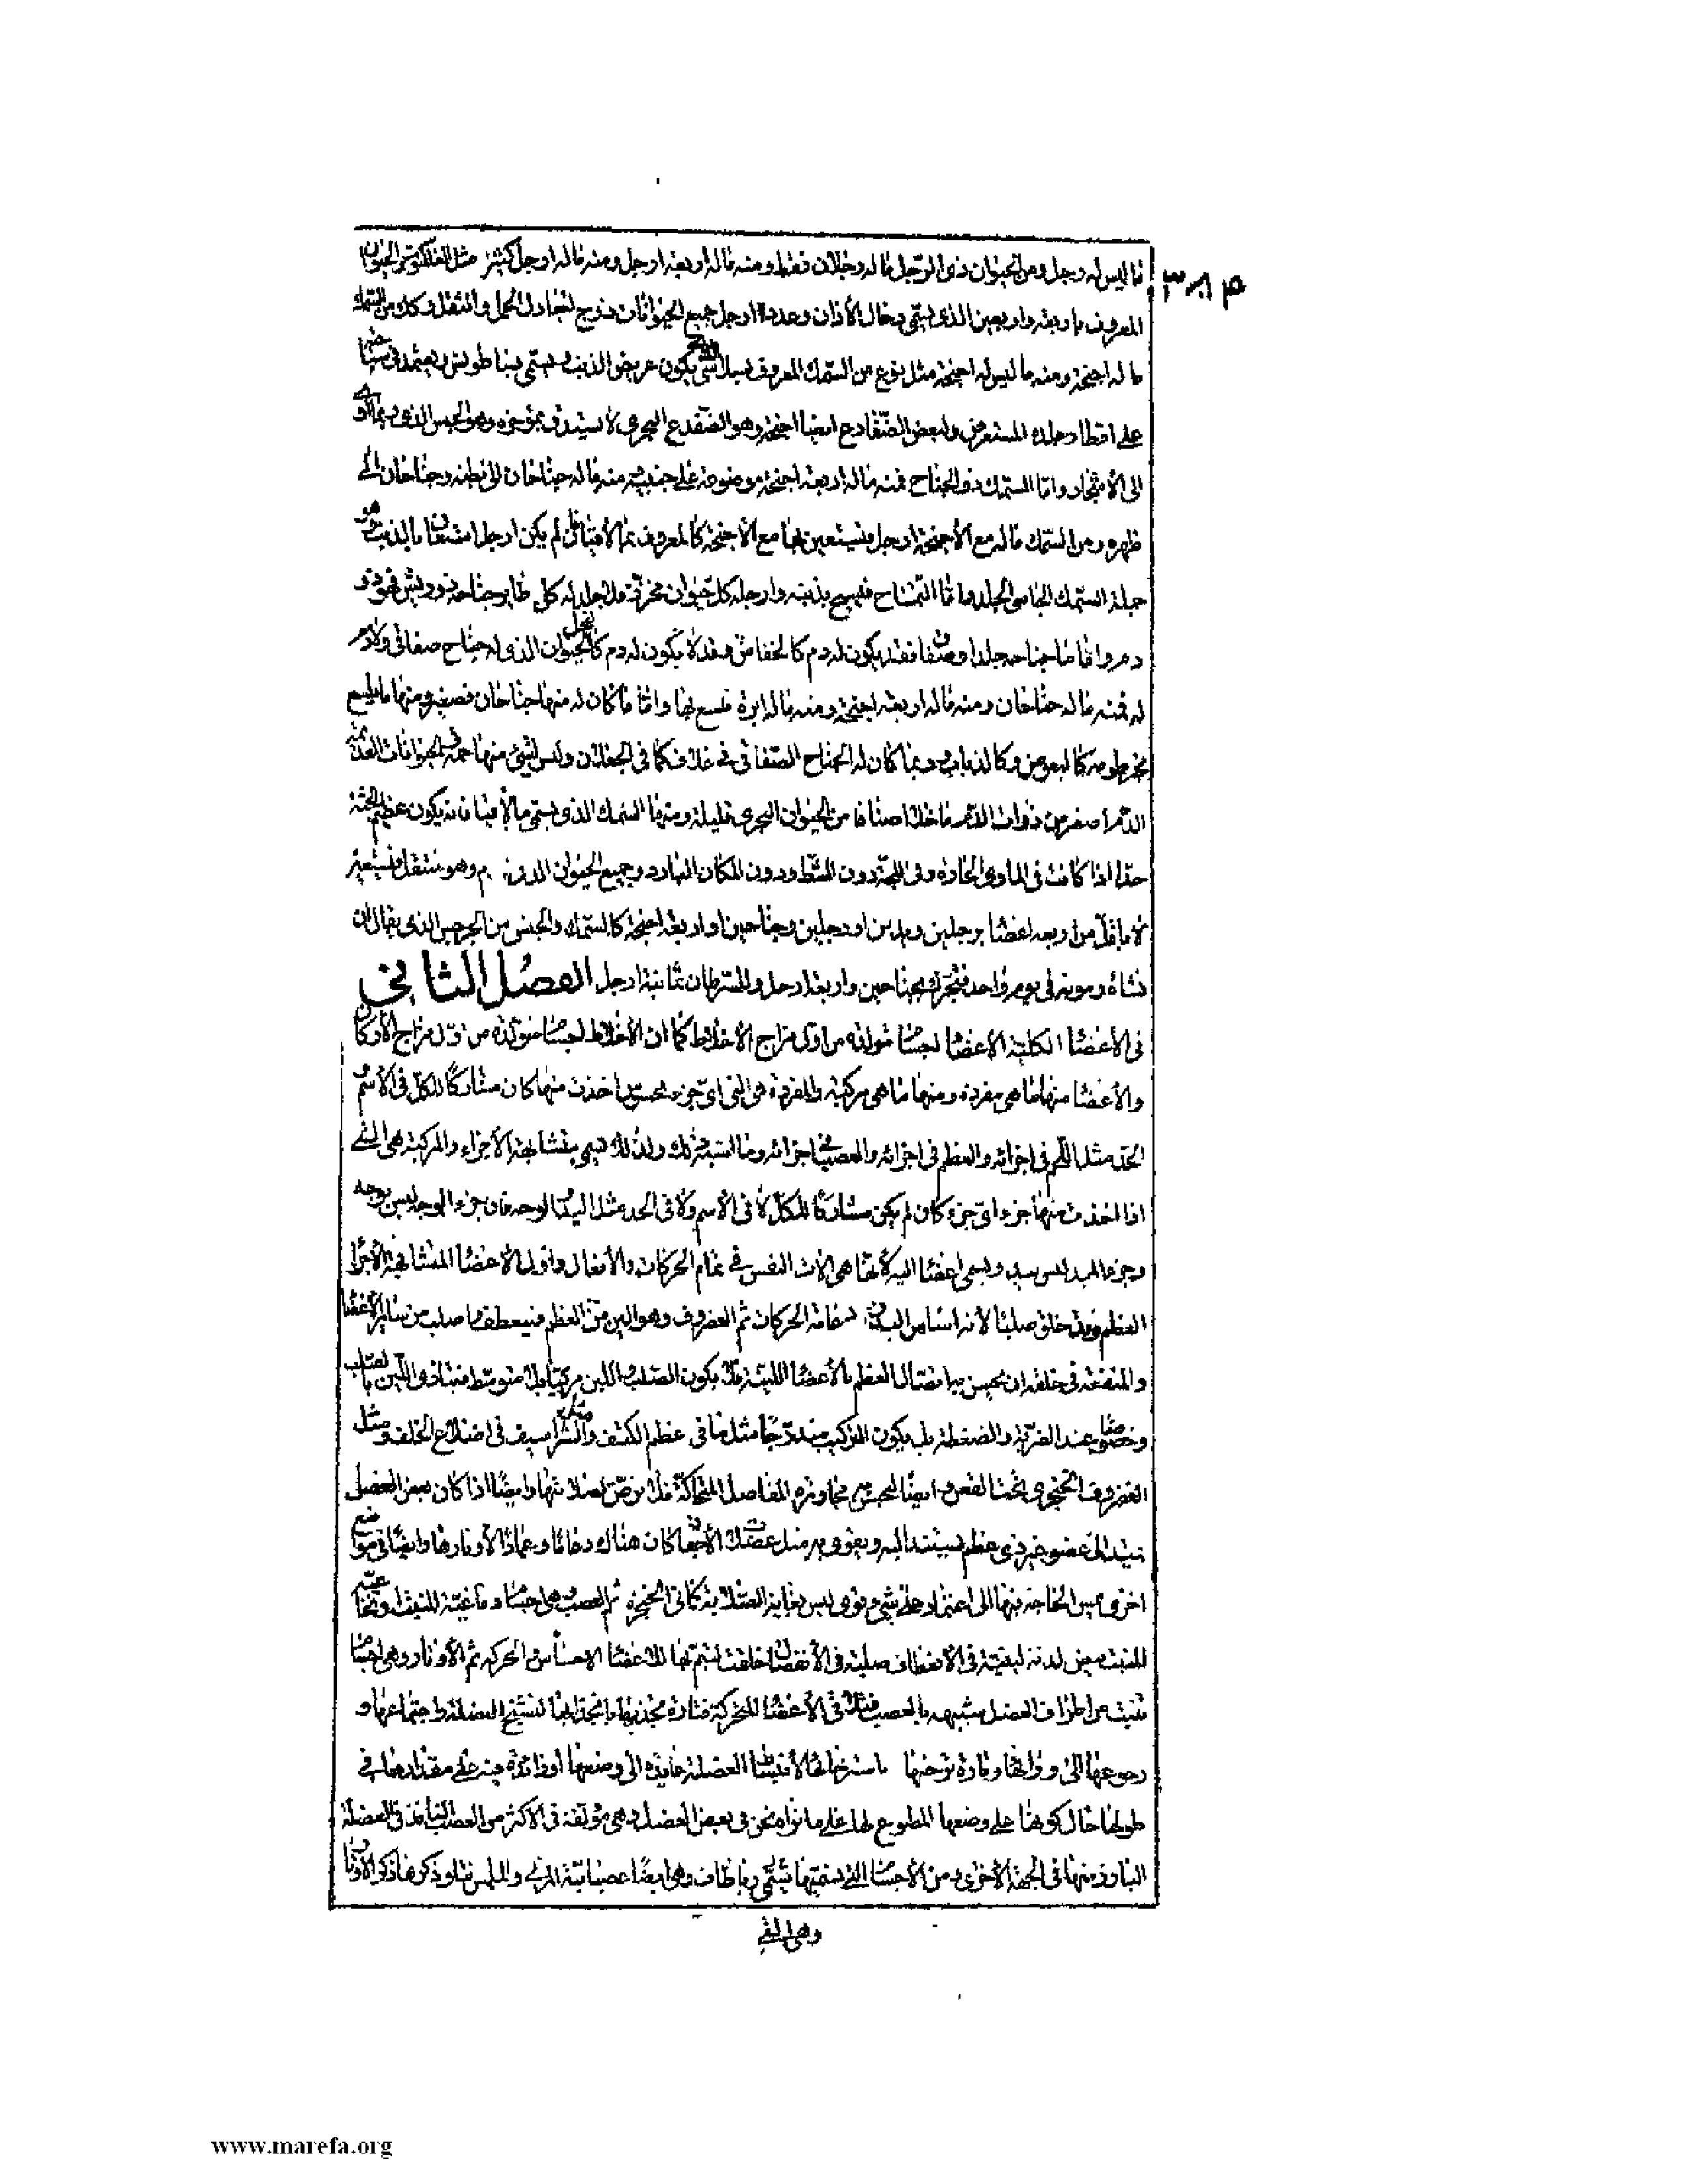 ما ليس له رجل ومن الحيوان ذى الرّجل ما له رجلان فقط ومنه ما له اربعة ارجل ومنه ما له ارجل كثيرة مثل العنكبوت والحيوان
المعروف باربعة واربعين الذى يسمّى دخال الأذان وعدد ارجل جميع الحيوانات زوج لتعادل الحمل والنقل وكك من السّمك
ما له اجنحة ومنه ما ليس له اجنحة مثل نوع من السّمك المعروف يكون عريض الذنب ويسمّى ويعتمد فى سباحته
على اقطار جلده المستعرض ولبعض الضّفادع ايضا اجنحة وهو الضّفدع البحرى لا يستدق بمؤخره وهو الجنس الذى
الى الأشجار وامّا السّمك ذو الجناح فمنه ما له اربعة اجنحة موضوعة على جنبيه ومنه ما له جناحان الى بطنه وجناحان الى
ظهره ومن السّمك ما له مع الأجنحة ارجل فيستعين بها مع الأجنحة كالمعروف لم يكن ارجلا بالذنب وهو
جملة السّمك الجاسى الجلد وامّا التّمساح فيسبح بذنبه وارجله كلّ حيوان كلّ طاير جناحه ذو ريش فهو ذو
دم وامّا ما جناحه جلد او صفاق فقد يكون له دم كالخفاش وقد لا يكون له دم كالنحل الحيوان الذى له جناح صفاقى ولا دم
له فمنه ما له جناحان ومنه ما له اربعة اجنحة ومنه ما له ابرة فلسع بها وامّا ما كان له منها جناحان فصغير ومنها ما يلسع
بخرطومه كالبعوض وكالذباب وربما كان له الجناح الصّفاقى فى غلاف كما فى الجعلان وليس لشىء منها حمة والحيوانات العديمة
الدّم اصغر من ذوات الدّم ما خلا اصنافا من الحيوان البحرى قليلة ومنها السّمك الذى يسمّى مالاقيا فانه يكون عظيم الجثة
جدا اذا كانت فى المأوى الحارّة وفى اللّجة دون الشّط ودون المكان البارد وجميع الحيوان وهو منتقل فيستعين
لا باقلّ من اربعة اعضاء برجلين ويدين او رجلين وجناحين او اربعة اجنحة كالسّمك والجنس من الجرجس الذى يقال ان
نشأه وموته فى يوم واحد فيتحرك بجناحين واربعة ارجل وللسّرطان ثمانية ارجل الفصل الثانى
فى الأعضاء الكلية الأعضاء اجسام متولدة من اوّل مزاج الأخلاط كما ان الأخلاط اجسام متولدة من اوّل مزاج الأركان
والأعضاء منها ما هى مفردة ومنها ما هى مركبة والمفردة هى التى اىّ جزء محسوس اخذت منها كان مشاركا للكلّ فى الأسم
الحدّ مثل اللّحم فى اجزائه والعظم فى اجزائه والعصب فى اجزائه وما اشبه ذلك ولذلك تسمى متشابهة الأجزاء والمركبة هى التى
اذا اخذت منها جزء اىّ جزء كان لم يكن مشاركا للكلّ لا فى الأسم ولا فى الحد مثل اليد والوجه فان جزء الوجه ليس بوجه
وجزء اليد ليس بيد وتسمى اعضاء آلية لأنها هى آلات النفس فى تمام الحركات والأفعال واوّل الأعضاء المتشابهة الأجزا
العظم وقد خلق صلبا لأنه اساس البدن ودعامة الحركات ثم الغضروف وهو الين من العظم فينعطف واصلب من سائر الأعضا
والمنفعة فى خلقه ان يحسن به اتصال العظم بالأعضاء اللّينة فلا يكون الصّلب واللّين مركبا بلا متوسط فيتأذى اللّين بالصّلب
وخصوصا عند الضّربة والضغطة بل يكون التركيب متدرّجا مثل ما فى عظم الكتف والشّراسيف فى اضلاع الخلف ومثل
الغضروف الخنجرى تحت القصّ وايضا ليحسن به مجاورة المفاصل المتحاكّة فلا ترضّ لصلابتها وايضا اذا كان بعض العضل
يمتد الى عضو غير ذى عظم يستند اليه ويقوى به مثل عضلات الأجفان كان هناك دعاما وعمادا لأوتارها وايضا فى مواضع
اخرى تمس الحاجة فيها الى اعتماد على شىء قوى ليس بغاية الصّلابة كما فى الحنجرة ثم العصب هى اجسام دماغيّة المنبت او نخاعيّة
المنبت بيض لدنة ليّنة فى الأنعطاف صلبة فى الأنفصال خلقت ليتم بها للأعضاء الأحساس والحركة ثم الأوتار وهى اجسام
تنبت من اطراف العضل شبيهة بالعصب فتلاقى الأعضاء المتحركة فتارة تجذبها بانجذابها لتشنّج العضلة واجتماعها و
رجوعها الى ورائها وتارة ترخيها باسترخائها لأنبساط العضلة عايدة الى وضعها او زائدة فيه على مقدارها فى
طولها حال كونها على وضعها المطبوع لها على ما نراه نحن فى بعض العضل وهى مؤلفة فى الاكثر من العصب النافذ فى العضلة
البارزة منها فى الجهة الأخرى ومن الأجسام التى تسمى رباطات وهى ايضا عصبانية المرأى والملمس يتلو ذكرها ذكر الأوتار
وهى التى
www.marefa.org